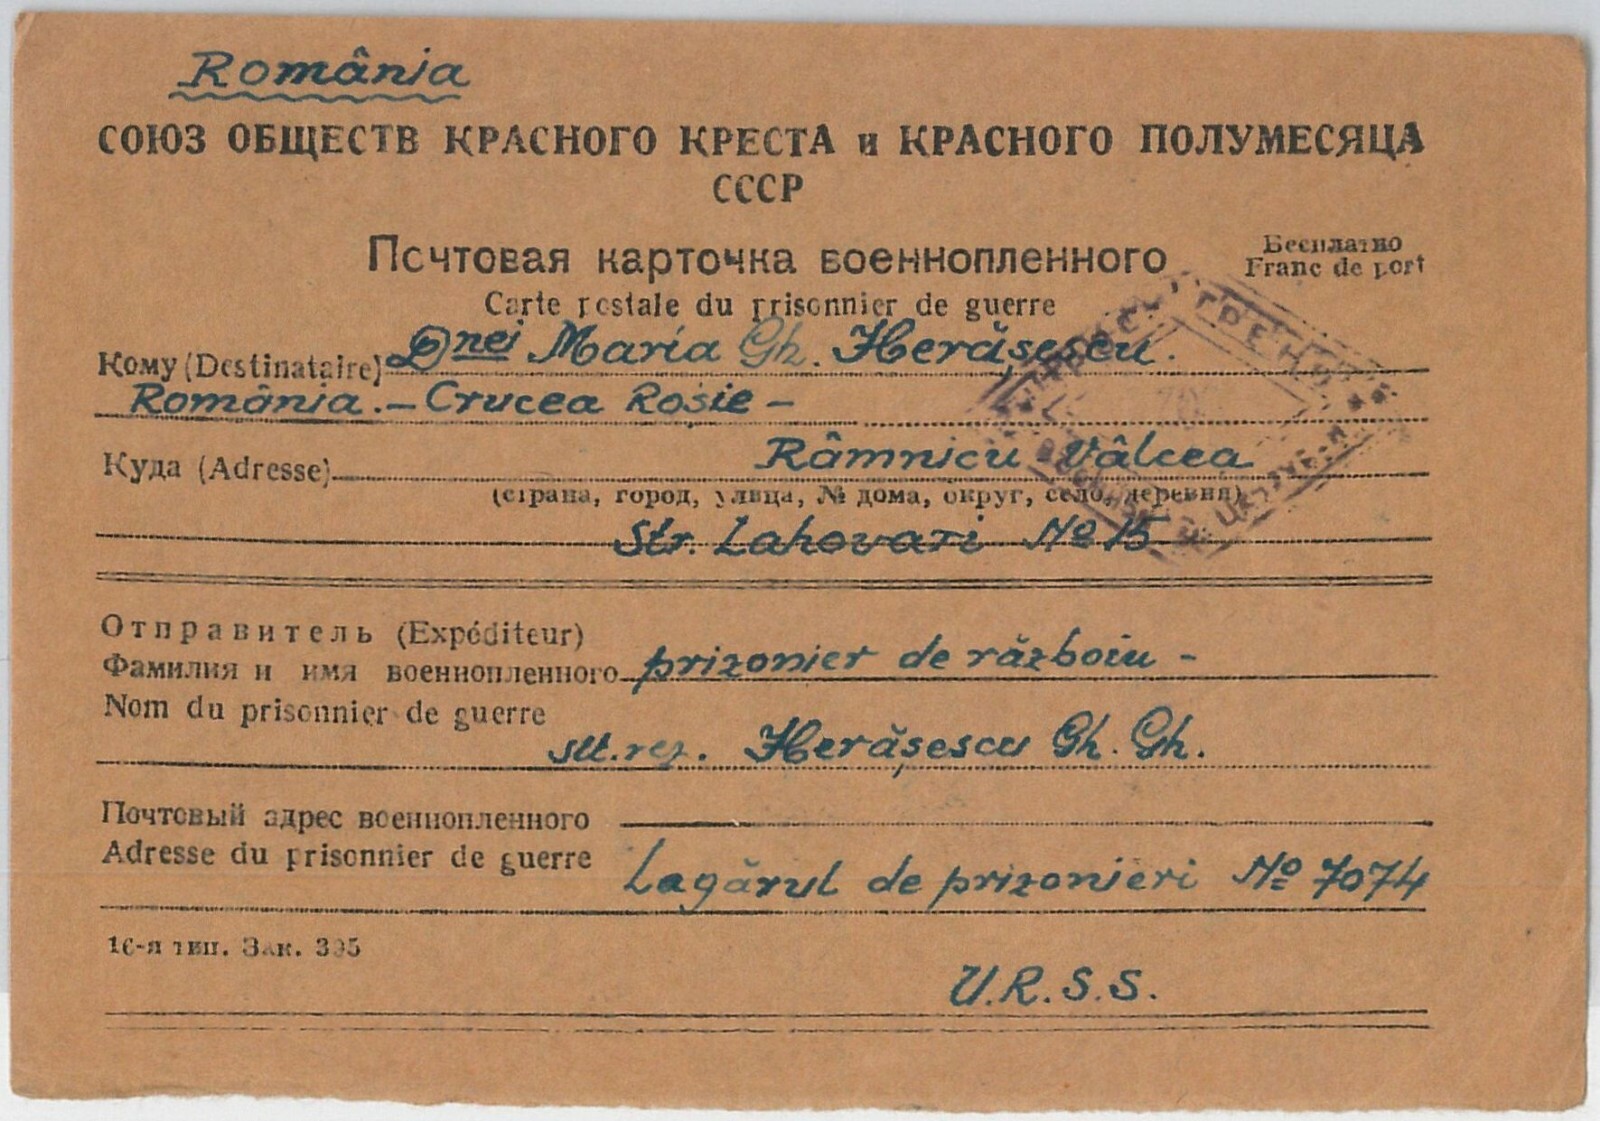 România
СОЮЗ ОБЩЕСТВ КРАСНОГО КРЕСТА и КРАСНОГО ПОЛУМЕСЯЦА
СССР
Почтовая карточка военнопленного
Бесплатно
Franc de port
Carte postale du prisonnier de guerre
Кому (Destinataire) Dnei Maria Gh. Herăşescu.
România. – Crucea Roşie –
Куда (Adresse) Râmnicu Vâlcea
(страна, город, улица, № дома, округ, село, деревня)
Str. Lahovari No 15
Отправитель (Expéditeur)
Фамилия и имя военнопленного prizonier de război –
Nom du prisonnier de guerre
slt. rez. Herăşescu Gh. Gh.
Почтовый адрес военнопленного
Adresse du prisonnier de guerre Lagărul de prizonieri No 7074
16-я тип. Зак. 395
U.R.S.S.